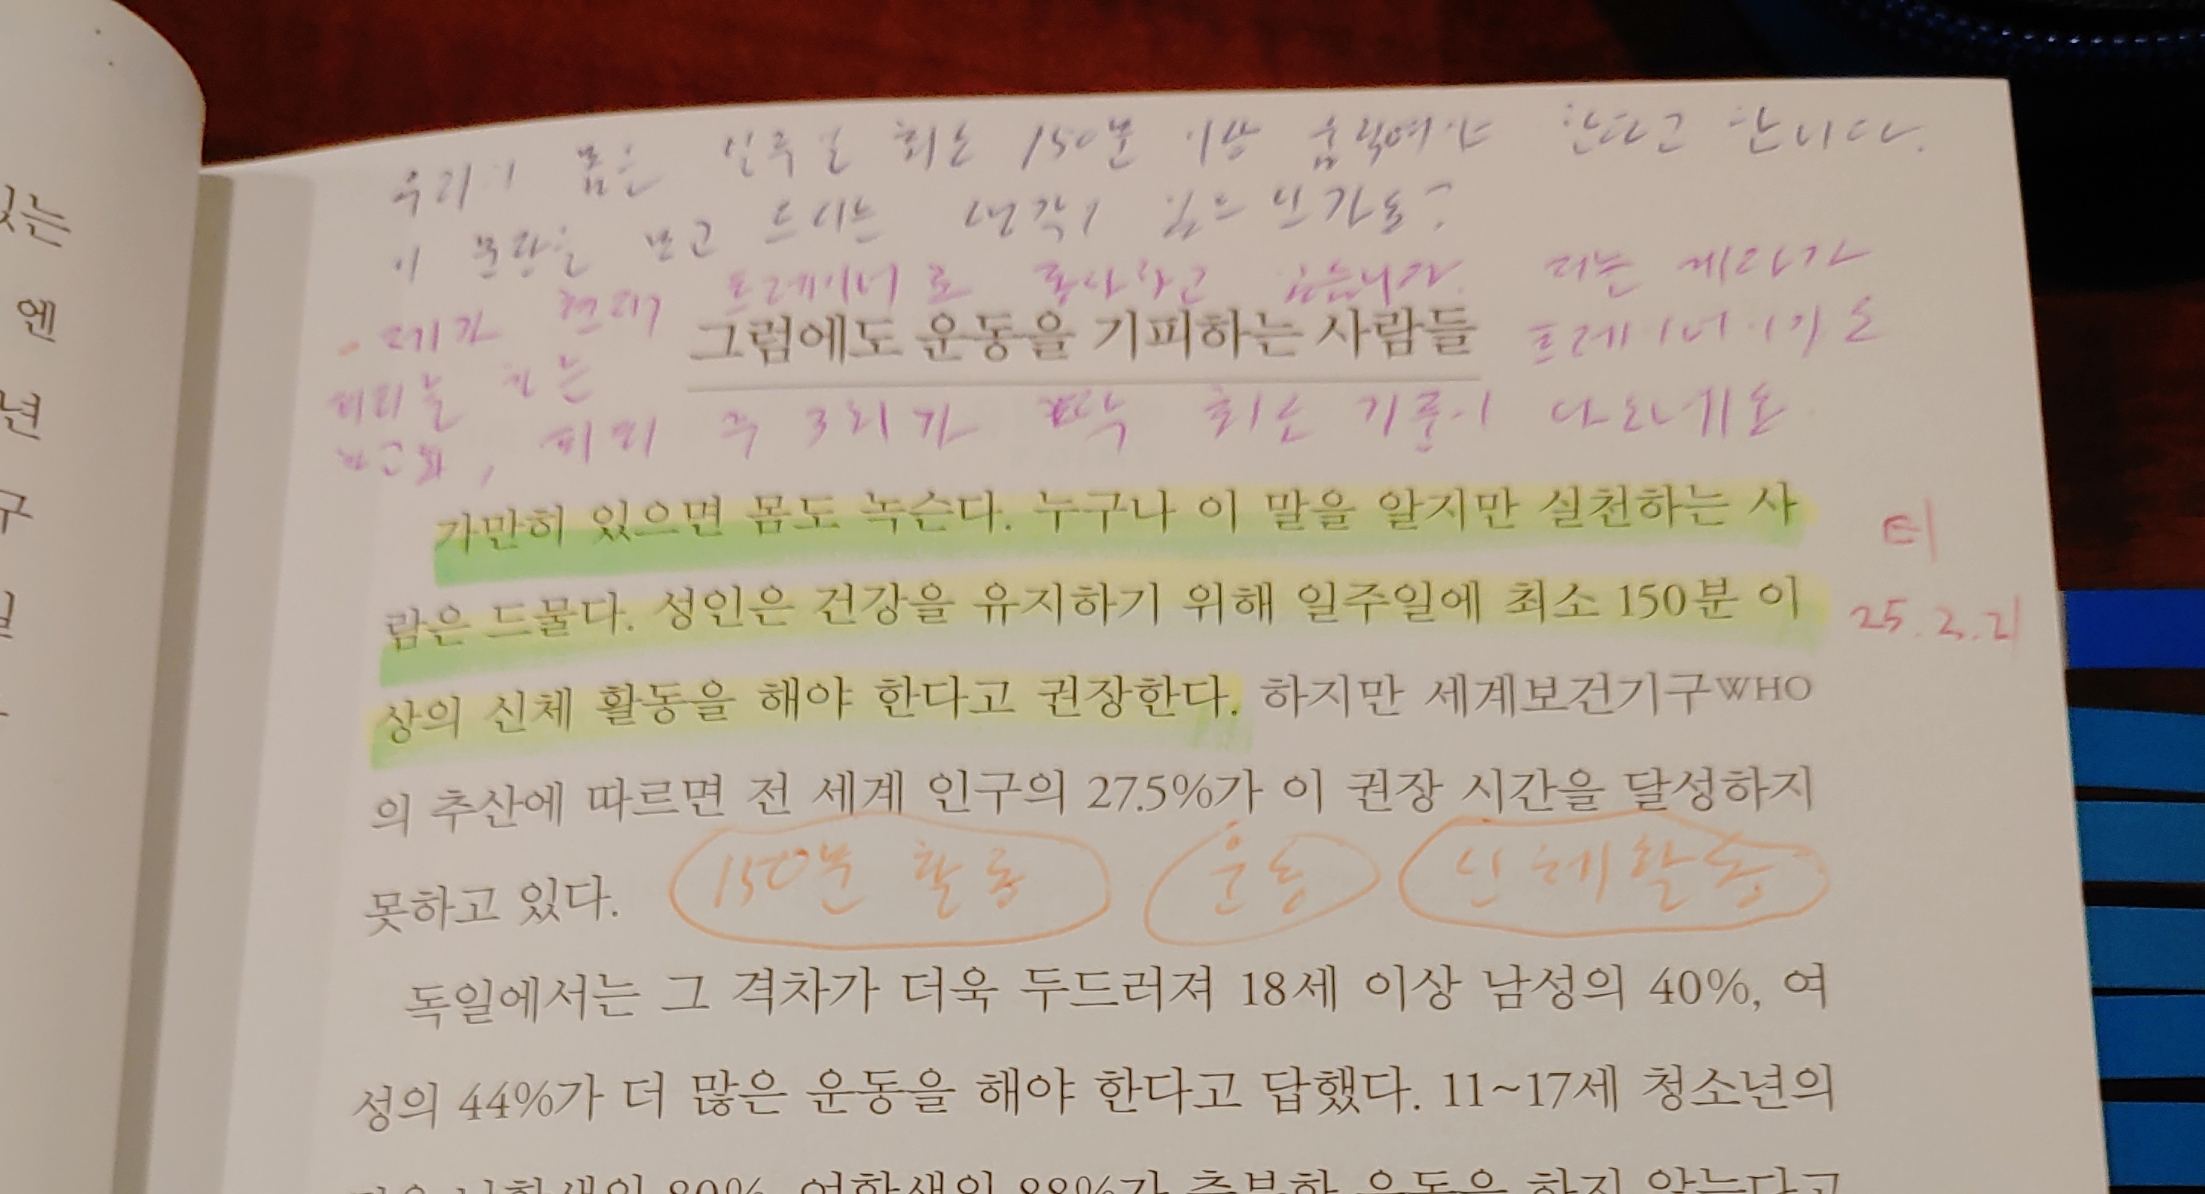 있는
엔
년
구
일
우리의 몸은 일주일 최소 150분 이상 움직여야 한다고 합니다.
이 문장을 보고 드시는 생각이 있으신가요?
제가 현재 트레이너로 종사하고 있습니다. 저는 제가
그럼에도 운동을 기피하는 사람들
트레이너
피티 주 3회가 딱 최소 기준이 나오네요.
가만히 있으면 몸도 녹슨다. 누구나 이 말을 알지만 실천하는 사
람은 드물다. 성인은 건강을 유지하기 위해 일주일에 최소 150분 이
상의 신체 활동을 해야 한다고 권장한다. 하지만 세계보건기구WHO
의 추산에 따르면 전 세계 인구의 27.5%가 이 권장 시간을 달성하지
못하고 있다.
150분 활동 운동 신체활동
25.2.21
독일에서는 그 격차가 더욱 두드러져 18세 이상 남성의 40%, 여
성의 44%가 더 많은 운동을 해야 한다고 답했다. 11~17세 청소년의
80%, 여학생의 88%가 충분한 운동을 하지 않는다고